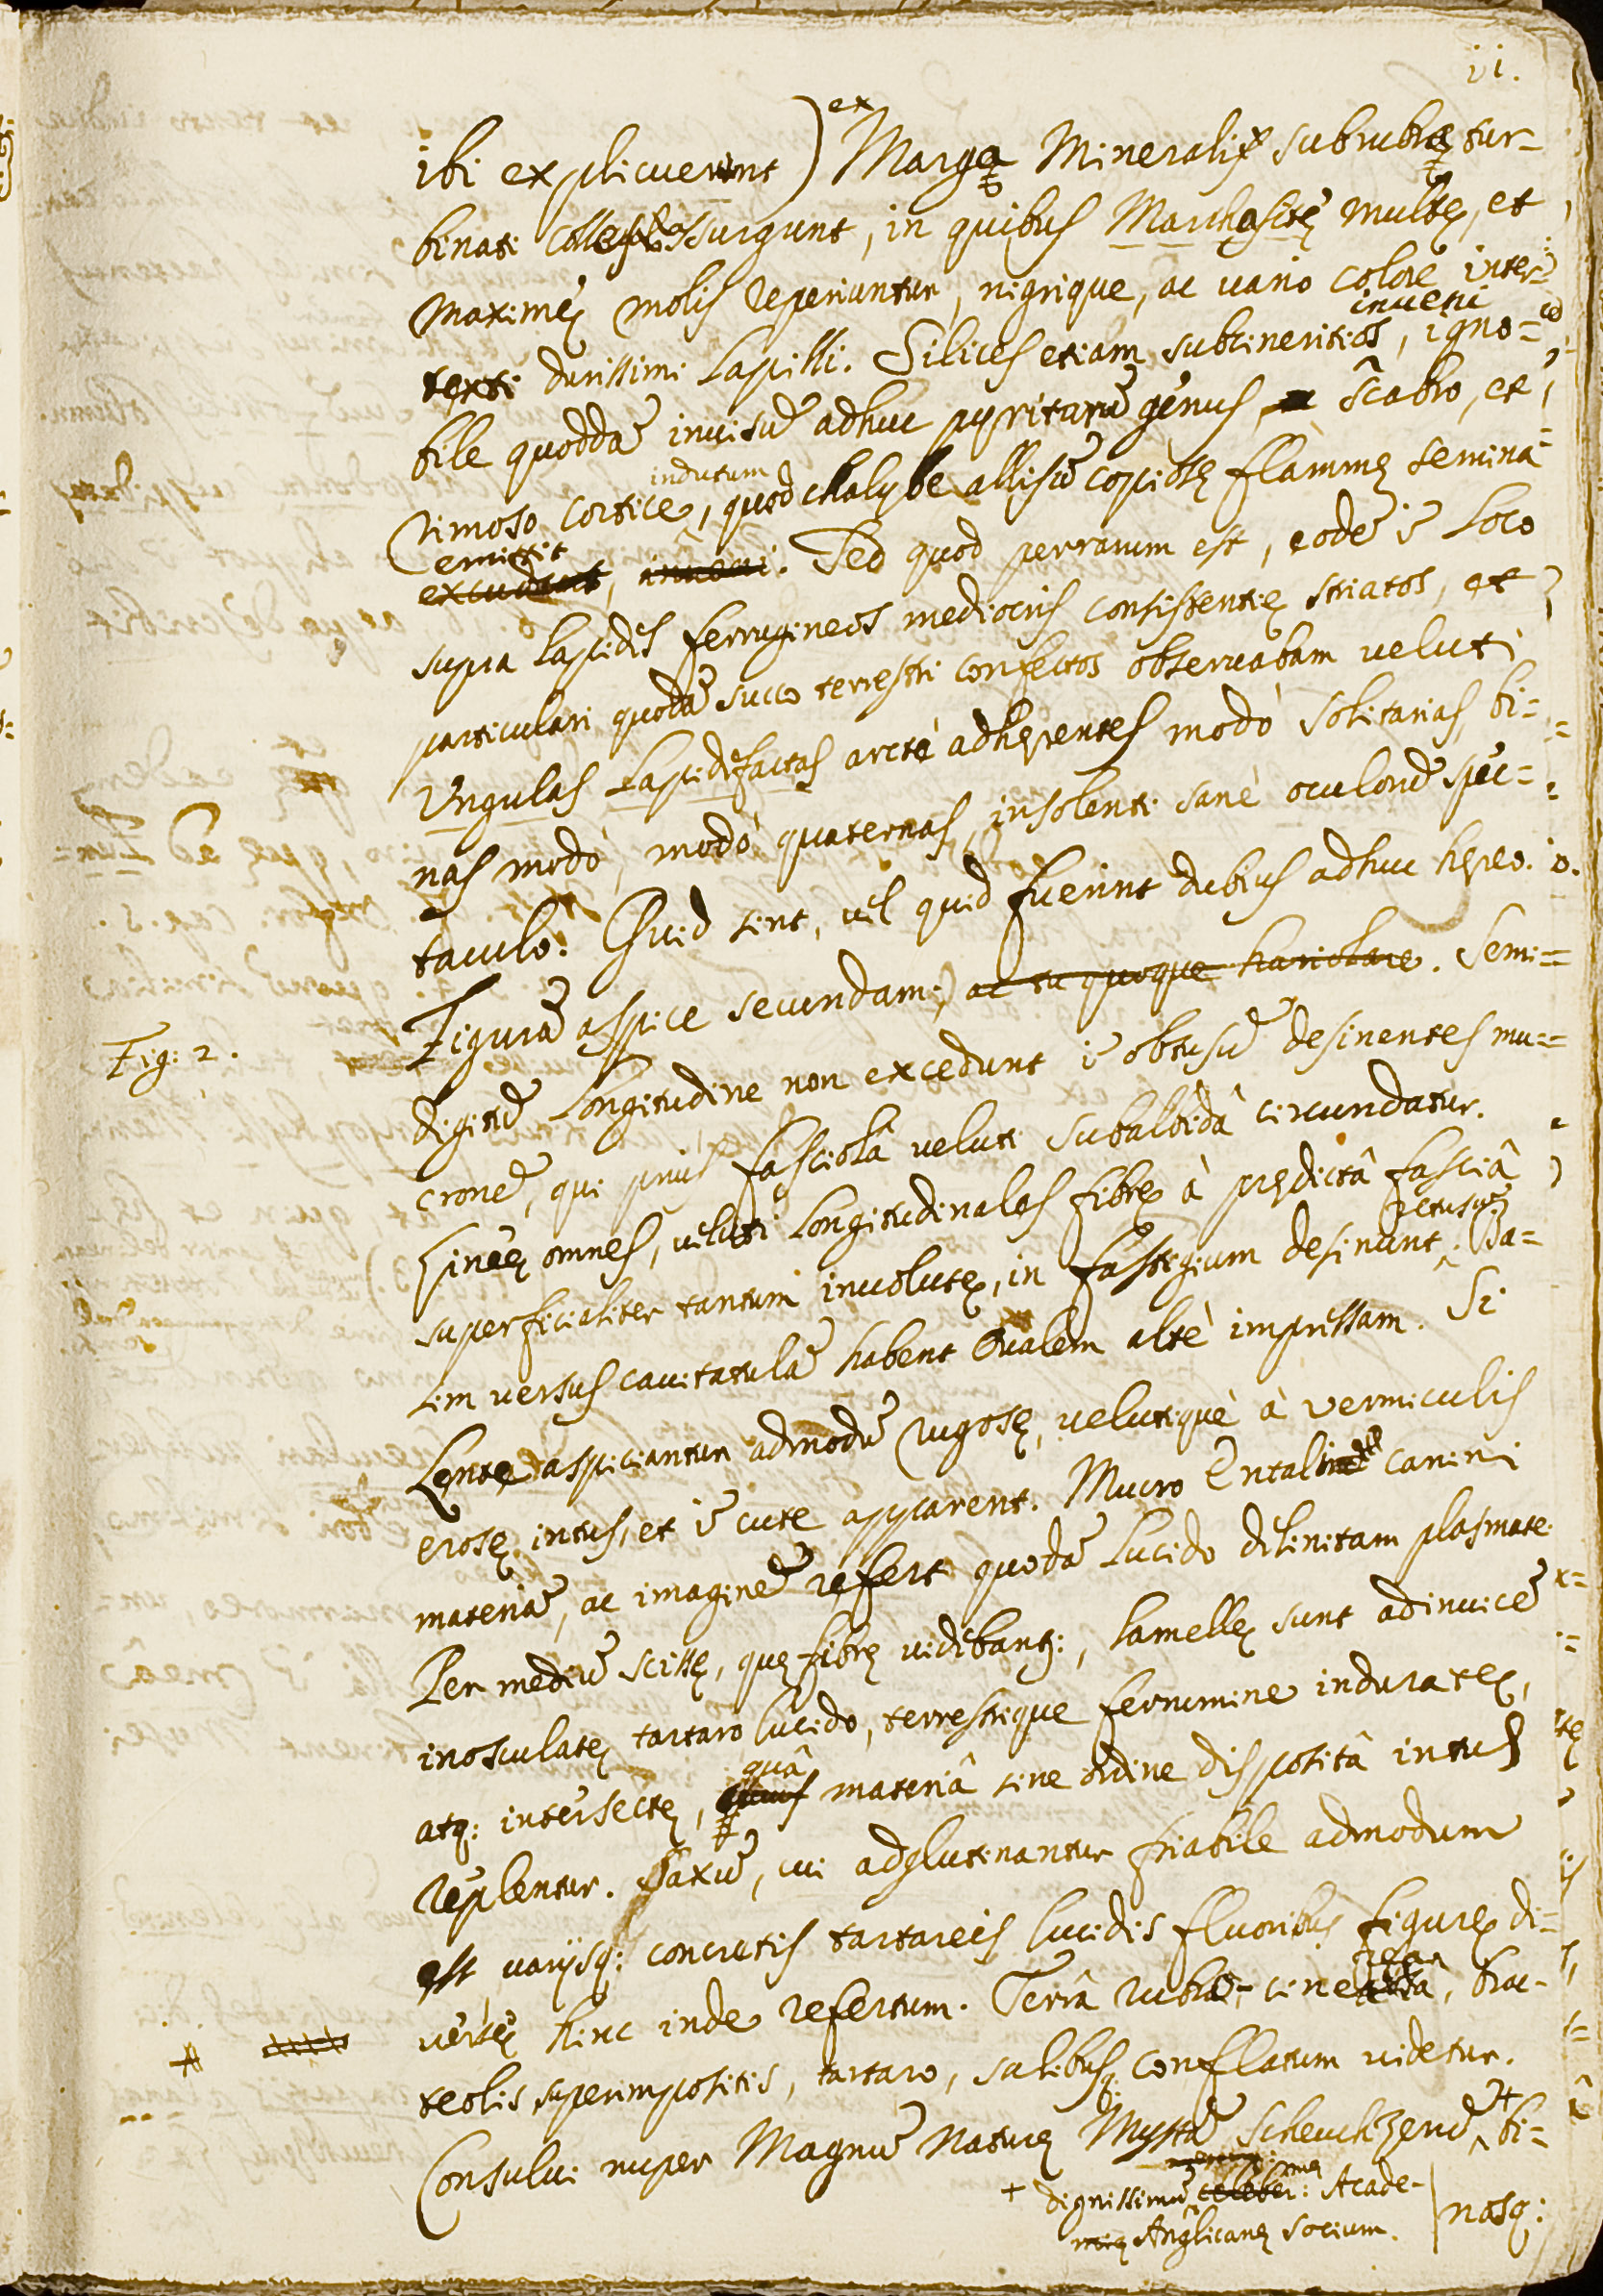 11.
ibi explicuerunt) ex Margę Mineralis subrubrę tur=
binati Colles assurgunt, in quibus Marchasitę multę, et
maximę molis reperiuntur, nigrique, ac uario colore inter=
texti durissimi Lapilli. Silices etiam subcineritios, inueni igno=
bile quoddã inuisũ adhuc pyritarũ genus, scabro, et
rimoso cortice, indutum quod chalybe allisũ copiosę flammę semina
emittit excudunt, inueni. Sed quod perrarum est, eodẽ ĩ Loco
supra Lapides ferrugineos mediocris consistentię striatos, et
particulari quodã succo terrestri confectos obseruabam ueluti
Vngulas Lapidefactas arctè adhęrentes modò solitarias, bi=
nas modò, modò quaternas, insolenti sanè oculorũ spec=
taculo. Quid sint, uel quid fuerint dubius adhuc hęreo.
Figurã aspice secundam, ac tu quoque hariolare. Semi=
Fig: 2.
digitũ Longitudine non excedunt ĩ obtusũ desinentes mu=
cronẽ, qui prius fasciolâ ueluti subalbidâ circundatur.
Lineę omnes, ueluti Longitudinales fibrę à prędictâ fasciâ
superficialiter tantum inuolutę, in fastigium desinunt retusũ. Ba=
sim versus cauitatulã habent Oualem altè impressam. Si
Lente aspiciantur admodũ rugosę, uelutiquè à vermiculis
erosę intus, et ĩ cute apparent. Mucro Entalis canini
materiã, ac imaginẽ refert quodã Lucido delinitam plasmate.
Per mediũ scissę, quę fibrę uidebant:, Lamellę sunt adinuicẽ
inosculatę tartaro lucido, terrestrique ferrumine induratę,
atq: intersectę, quâ materiâ sine ordine dispositâ intus
replentur. Saxũ, cui adglutinantur friabile admodum
est uarijsq: concretis tartareis lucidis fluoribus figurę di=
uersę hinc inde refertum. Terrâ rubrâ, cinereâ, brac=
teolis superimpositis, tartaro, salibusq: conflatum uidetur.
Consului nuper Magnũ Naturę Mystã Scheuchzerũ + bi=
+ dignissimũ Acade=
mię Anglicanę socium.
nosq: